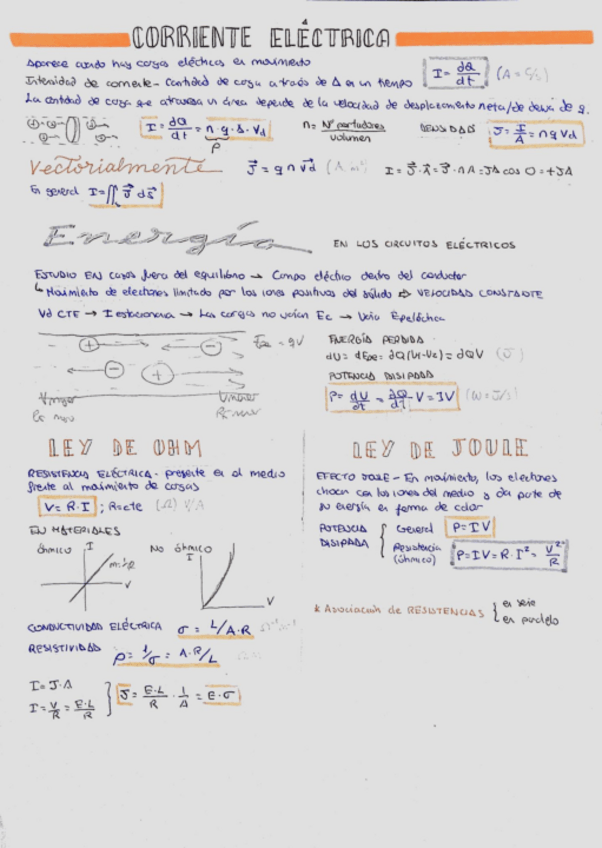 CORRIENTE ELÉCTRICA
Aparece cuando hay cargas eléctricas en movimiento
Intensidad de corriente - Cantidad de carga a través de Δ en un tiempo
I = dQ/dt (A = C/s)
La cantidad de carga que atraviesa un área depende de la velocidad de desplazamiento neta/de deriva de q.
I = dQ/dt = n·q·S·Vd
ρ
n = Nº portadores / volumen
DENSIDAD J = I/A = n q Vd
Vectorialmente
J⃗ = q n v⃗d
I = J⃗·A⃗ = J⃗·n A = JA cos 0 = +JA
En general I = ∬ J⃗ ds⃗
Energía EN LOS CIRCUITOS ELÉCTRICOS
ESTUDIO EN casos fuera del equilibrio → Campo eléctrico dentro del conductor
↳ Movimiento de electrones limitado por los iones positivos del sólido ⇒ VELOCIDAD CONSTANTE
Vd CTE → I estacionaria → Las cargas no varían Ec → Varía Epeléctrica
ENERGÍA PERDIDA
dU = dEpe = dQ(V1-V2) = dQV (J)
POTENCIA DISIPADA
P = dU/dt = dQ/dt · V = IV (W = J/s)
LEY DE OHM
RESISTENCIA ELÉCTRICA - presente en el medio
frente al movimiento de cargas
V = R·I ; R=cte (Ω) V/A
EN MATERIALES
óhmico I
V
No óhmico
I
V
CONDUCTIVIDAD ELÉCTRICA σ = L/A·R
RESISTIVIDAD ρ = 1/σ = A·R/L
I = J·A
I = V/R = E·L/R
J = E·L/R · 1/A = E·σ
LEY DE JOULE
EFECTO JOULE - En movimiento, los electrones
chocan con los iones del medio y da parte de
su energía en forma de calor
POTENCIA DISIPADA
General P = IV
Resistencia (óhmico) P = IV = R·I² = V²/R
* Asociación de RESISTENCIAS
en serie
en paralelo